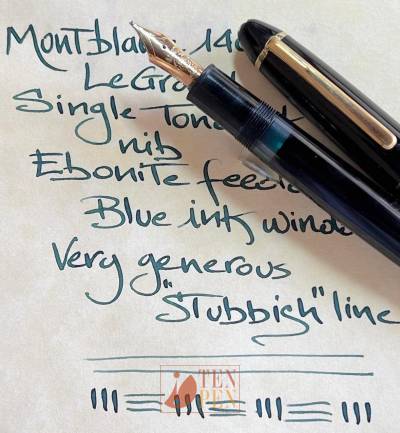 Montblanc 14
LeGra
Single Ton
nib
Ebonite feed
Blue ink window
Very generous
"Stubbish" line
TEN
PEN